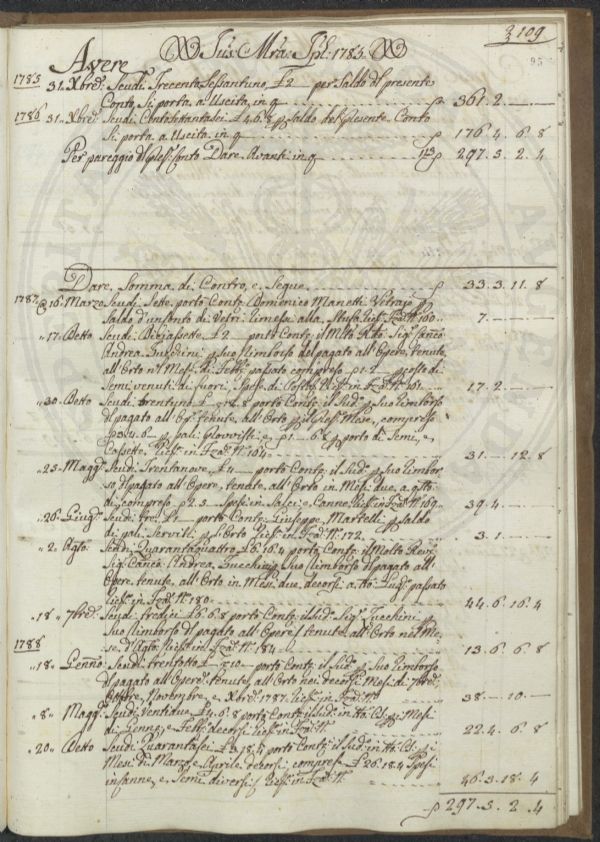 109
95
Jus: Mra: Jpl: 1785.
Avere
1785 31. Xbre Scudi Trecento Sessantuno, £ 2 per Saldo dl presente
Conto, Si porta a Uscita, in q 361. 2
1786 31. Xbre Scudi Cento £ 4. 6. 8 p Saldo del presente Conto
Si porta a Uscita in q 176. 4. 6. 8
Per pareggio Conto Dare Avanti in q 297. 3. 2. 4
Dare, Somma di Contro, e Segue 33. 3. 11. 8
1787. 16. Marzo Scudi Sette, portò Cont. Domenico Manetti Vetrajo p
Saldo d'un Conto di Vetri rimessi alla 160 7
17. Detto Scudi Diciassette, £ 2 portò Cont. il Mto Rdo Sigr Canco
Andrea Zucchini p Suo rimborso del pagato all'Opere, tenute
all'Orto nl Mese di Febb. passato compreso p 1. 2 costo di
Semi venuti di fuori, Spese di in Fza No 161 17. 2
30. Detto Scudi trentuno, £ 12. 8 portò Cont. il Sudo p Suo rimborso
dl pagato all'Opre tenute, all'Orto Mese, compreso
p pali, e p 1. 6. 8 p porto di Semi, e
Cassette, in Fza No 164 31. 12. 8
25. Maggo Scudi Trentanove, £ 4 portò Cont. il Sudo p Suo rimbor-
so dl pagato all'Opere, tenute, all'Orto in Mesi due, a tto
di, compreso p 2. 3 Spesi in Salci, e Canne in Fza No 169 39. 4
26. Giugo Scudi tre, £ 1 portò Cont. Giuseppe Martelli p Saldo
di pali, Serviti p l'Orto in Fza No 172 3. 1
2. Agto Scudi Quarantaquattro £ 6. 16. 4 portò Cont. il Molto Revo
Sigr Canco Andrea Zucchini p Suo rimborso dl pagato all'
Opere, tenute, all'Orto in Mesi due, decorsi a tto Lugo passato
in Fza No 180 44. 6. 16. 4
18. 7bre Scudi tredici £ 6. 6. 8 portò Cont. il Sudo Sigr Zucchini p
Suo rimborso dl pagato all'Opere tenute all'Orto nel Me-
se, d'Agto in Fza No 184 13. 6. 6. 8
1788
18. Genno Scudi trentotto £ 10 portò Cont. il Sudo p Suo rimborso
dl pagato all'Opere tenute, all'Orto nei decorsi Mesi di 7bre
Ottobre, Novembre, e Xbre 1787 in Fza No 38 10
8. Maggo Scudi Ventidue £ 4. 6. 8 portò Cont. il Sudo in tti Mesi
di Genno, e Febbo decorsi in Fza No 22. 4. 6. 8
20. Detto Scudi Quarantasei £ 3. 18. 4 portò Cont. il Sudo in tti
Mesi di Marzo, e Aprile decorsi, compreso £ 26. 18. 4 Spesi
in Canne, e Semi diversi in Fza No 46. 3. 18. 4
297. 3. 2. 4